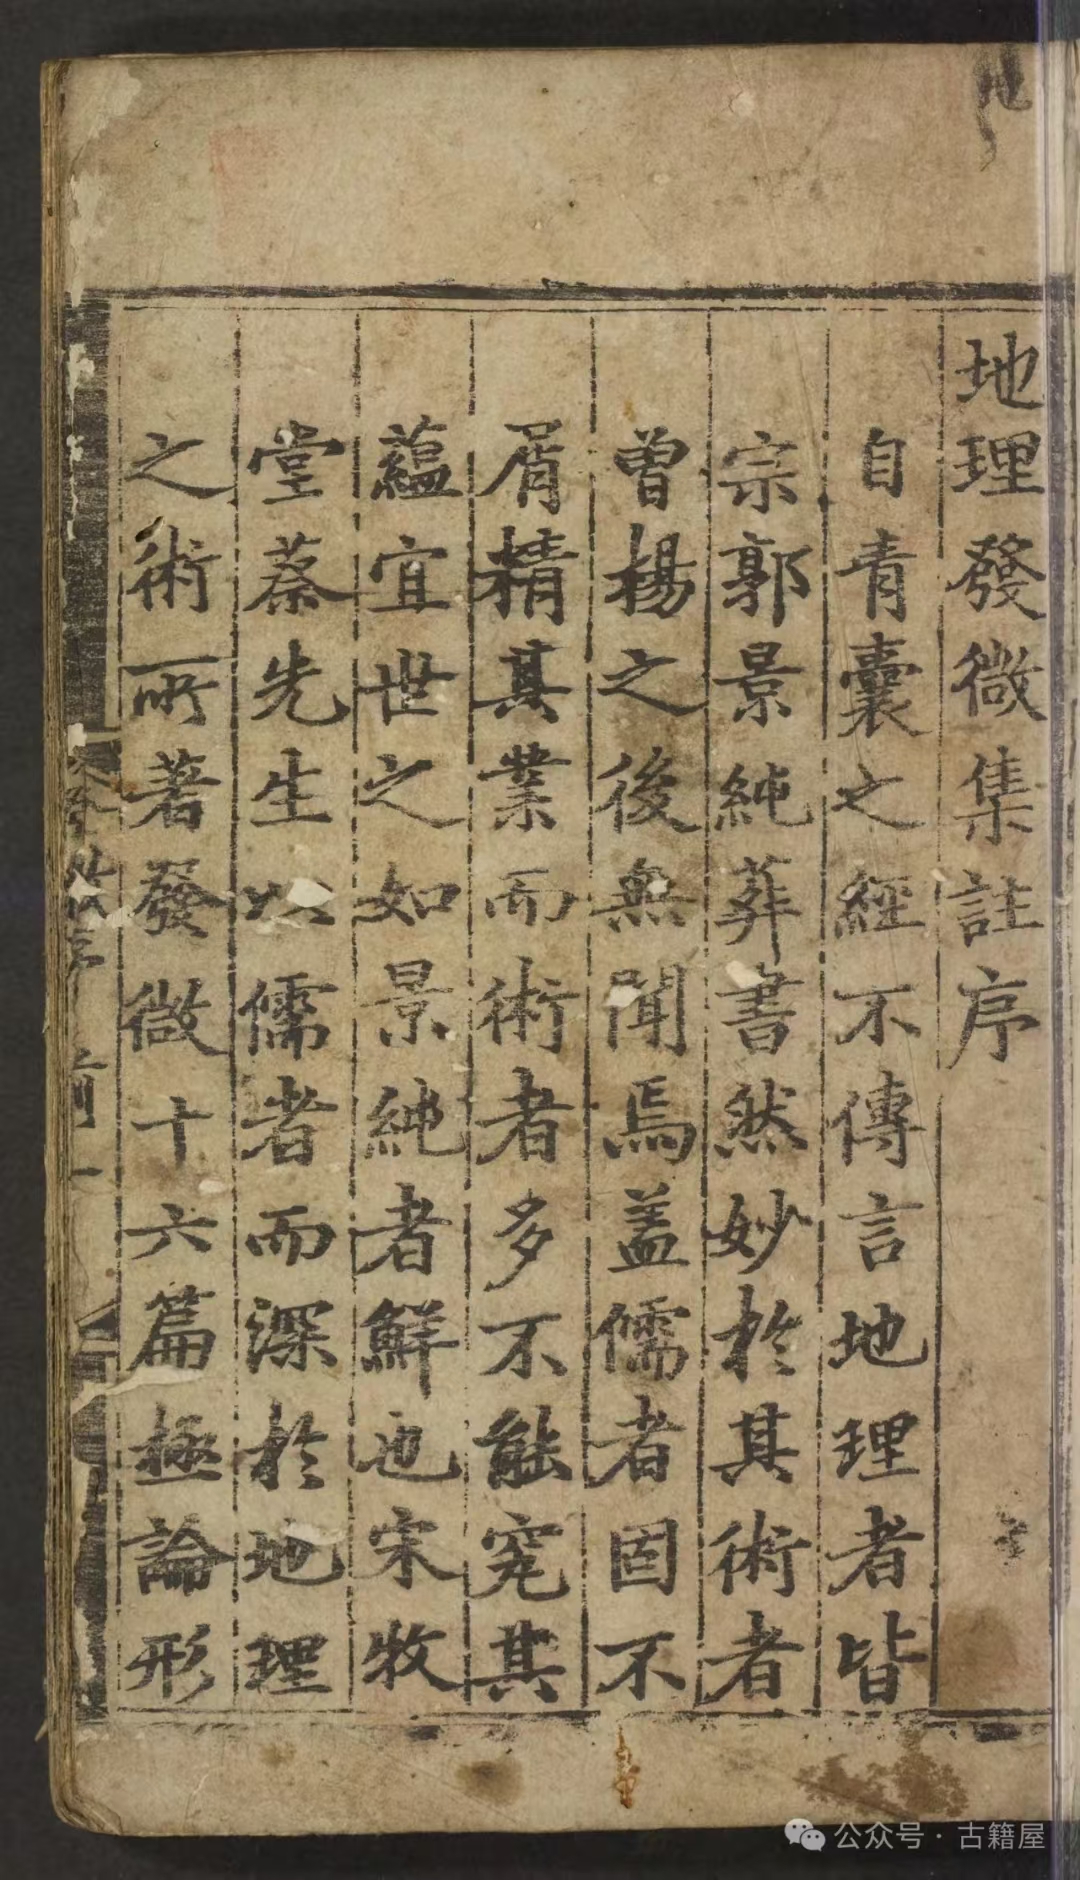 地理發微集註序
自青囊之經不傳言地理者皆
宗郭景純葬書然妙於其術者
曾楊之後無聞焉蓋儒者固不
屑精其業而術者多不能究其
蘊宜世之如景純者鮮也宋牧
堂蔡先生以儒者而深於地理
之術所著發微十六篇極論形
公众号·古籍屋